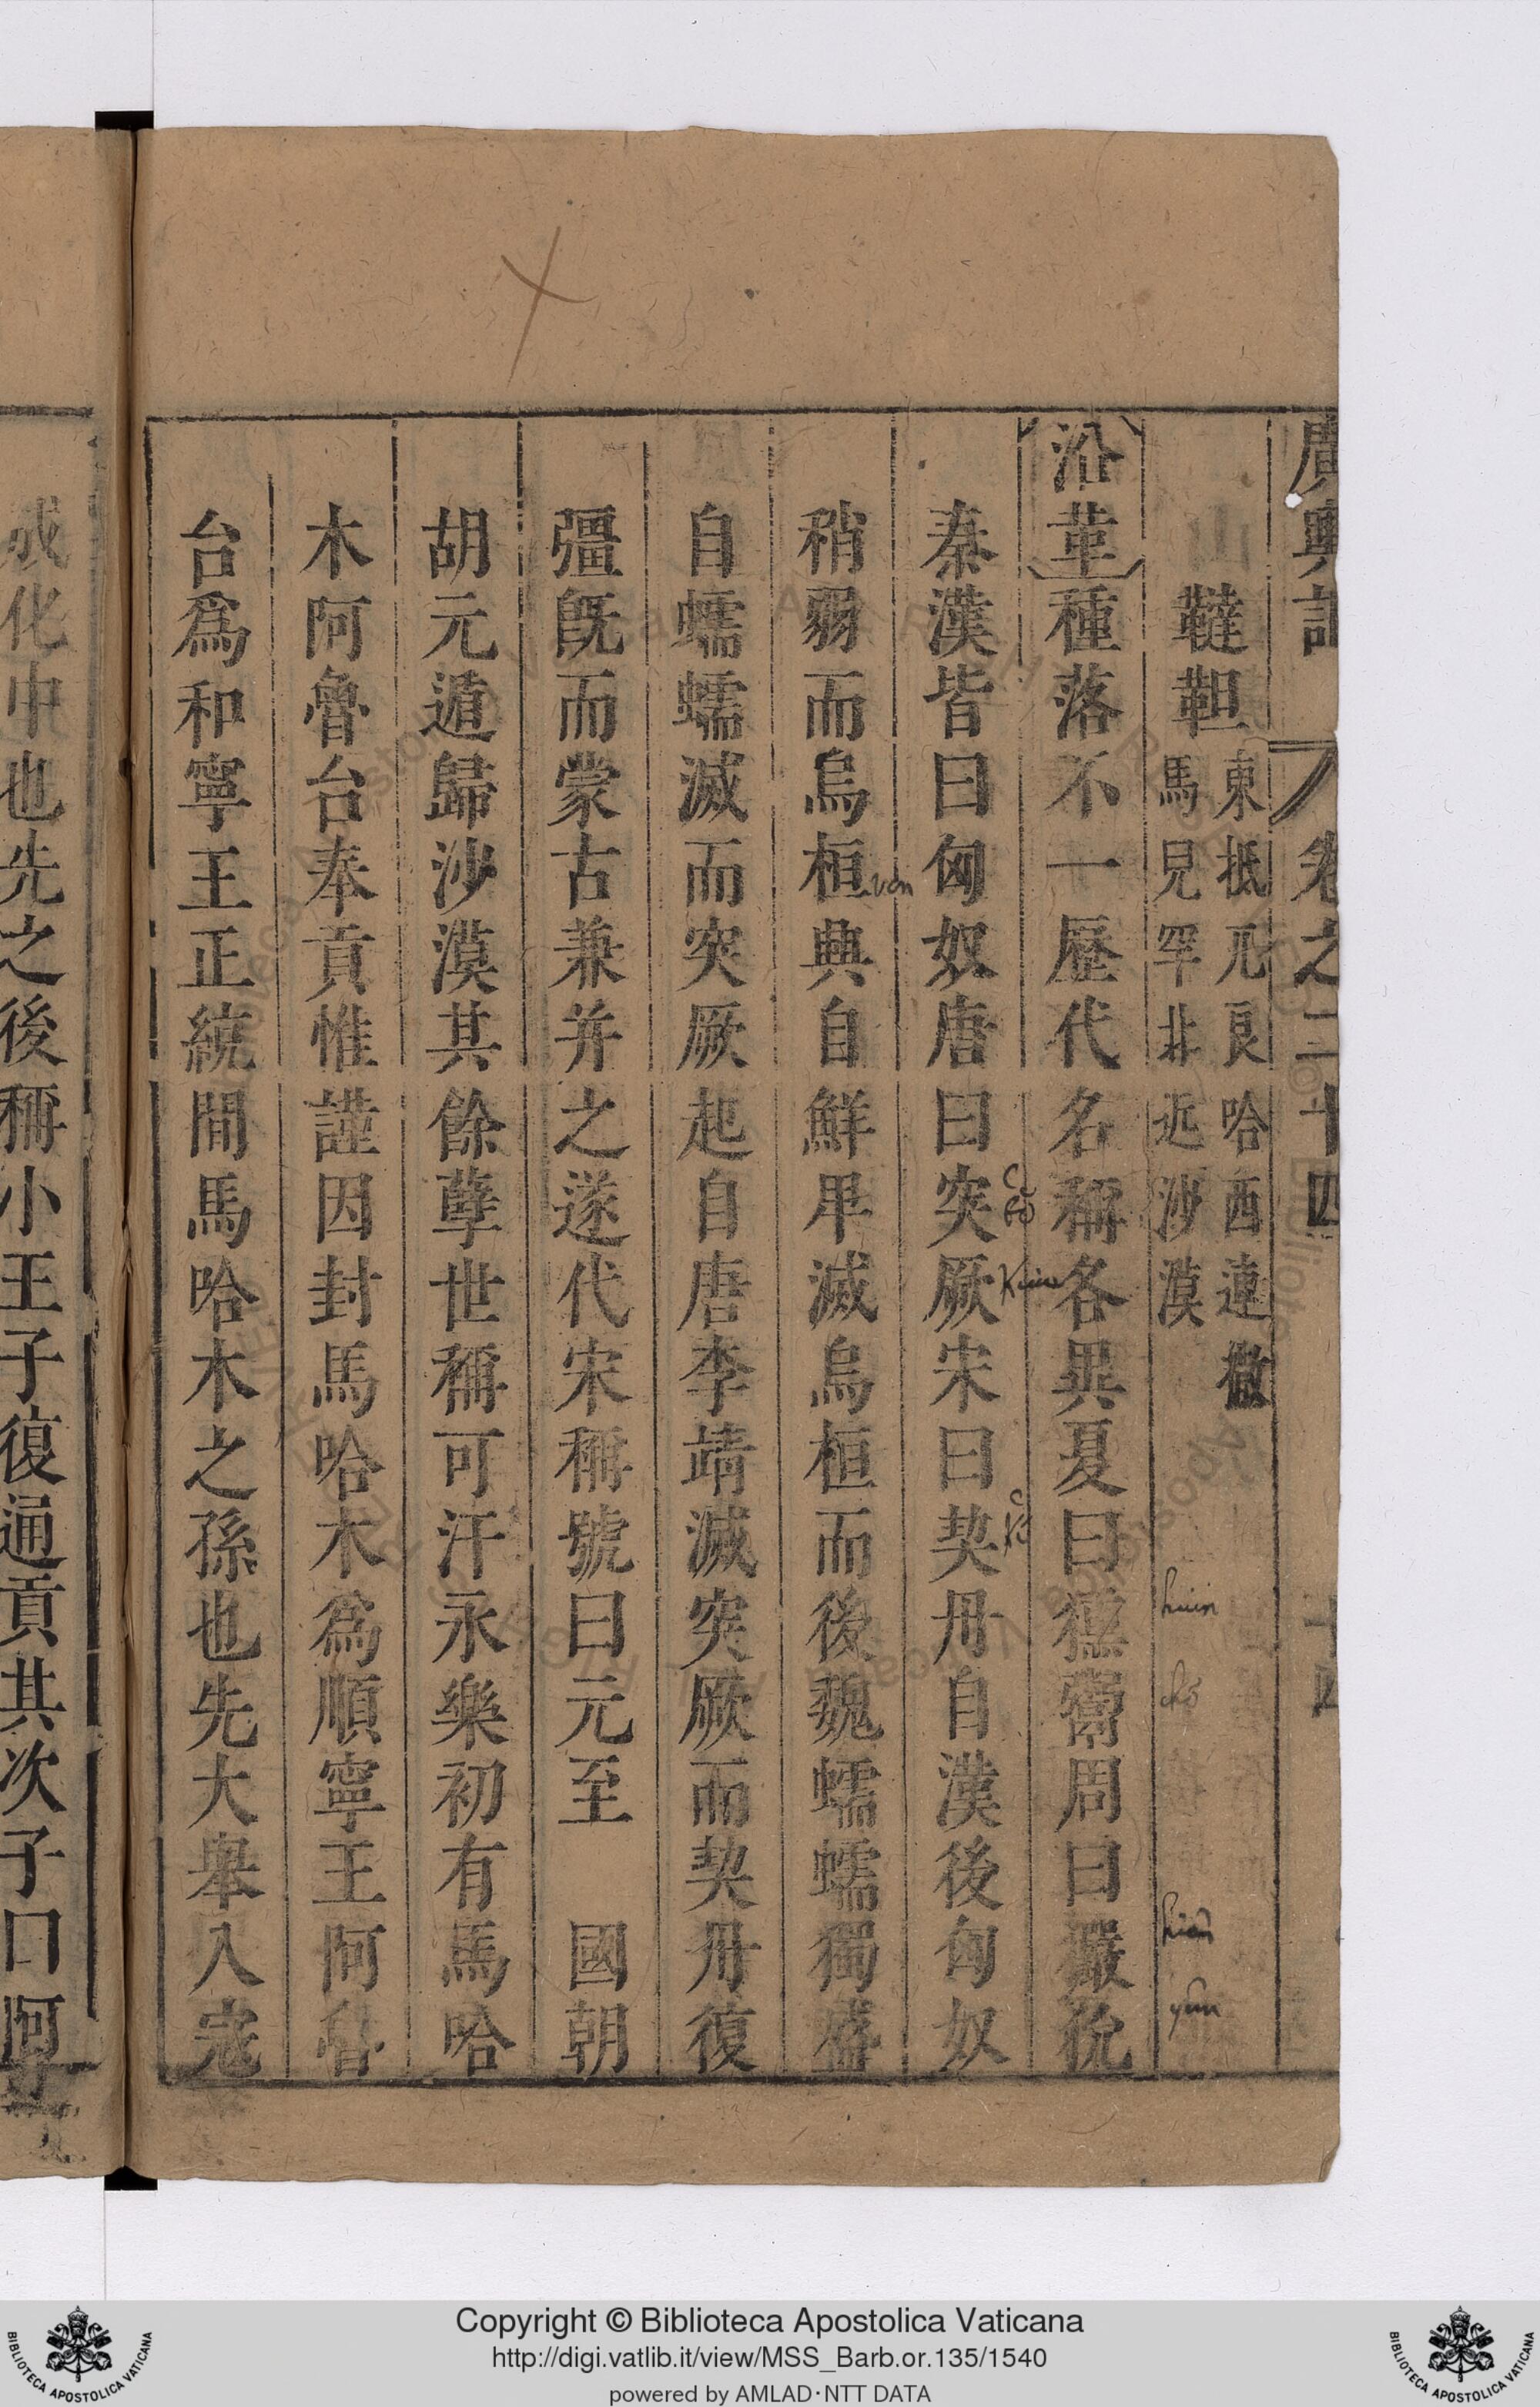 廣輿記 卷之二十四 十四
韃靼 東抵兀良哈西連徼
馬兒罕北迄沙漠
沿革 種落不一歷代名稱各異夏曰獯鬻周曰玁狁
秦漢皆曰匈奴唐曰突厥宋曰契丹自漢後匈奴
稍弱而烏桓興自鮮卑滅烏桓而後魏蠕蠕獨盛
自蠕蠕滅而突厥起自唐李靖滅突厥而契丹復
彊旣而蒙古兼并之遂代宋稱號曰元至 國朝
胡元遁歸沙漠其餘孽世稱可汗永樂初有馬哈
木阿魯台奉貢惟謹因封馬哈木爲順寧王阿魯
台爲和寧王正統間馬哈木之孫也先大舉入寇
成化中也先之後稱小王子復通貢其次子曰阿
huin
chǒ
hièn
yùn
Kiue
ven
BIBLIOTECA APOSTOLICA VATICANA
Copyright © Biblioteca Apostolica Vaticana
http://digi.vatlib.it/view/MSS_Barb.or.135/1540
powered by AMLAD·NTT DATA
BIBLIOTECA APOSTOLICA VATICANA